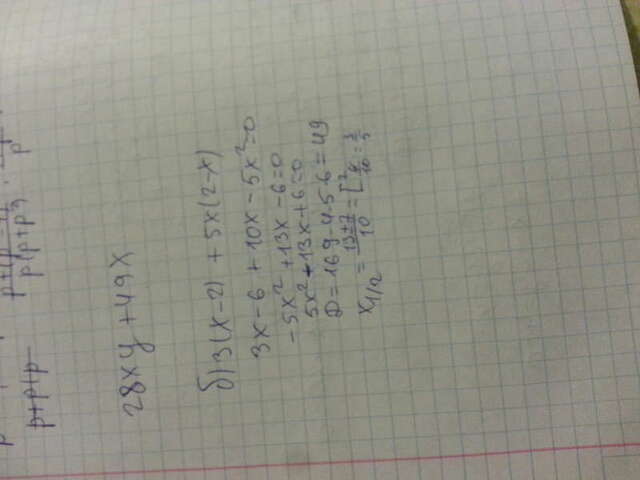 28xy + 49x
б) 3(x-2) + 5x(2-x)
3x-6+10x-5x²=0
-5x²+13x-6=0
5x²+13x+6=0
D=169-4·5·6=49
x₁/₂ = 13±7/10 = [2 6/10 = 3/5